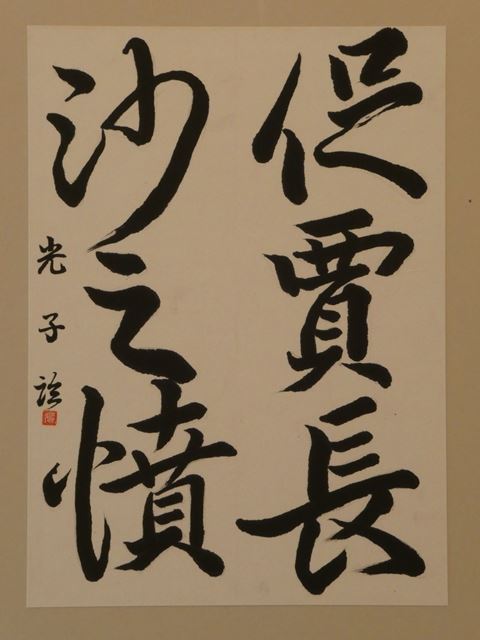 促賈長
沙之憤
光子臨